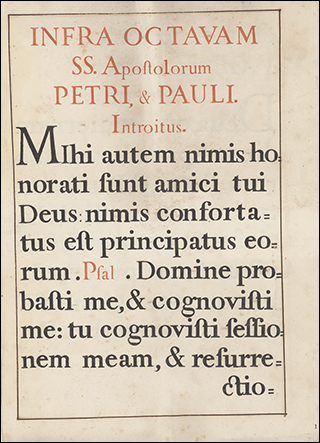 INFRA OCTAVAM
SS. Apoſtolorum
PETRI, & PAULI.
Introitus.
MIhi autem nimis ho=
norati ſunt amici tui
Deus: nimis conforta=
tus eſt principatus eo=
rum. Pſal. Domine pro=
baſti me, & cognoviſti
me: tu cognoviſti ſeſſio=
nem meam, & reſurre=
ctio=
1